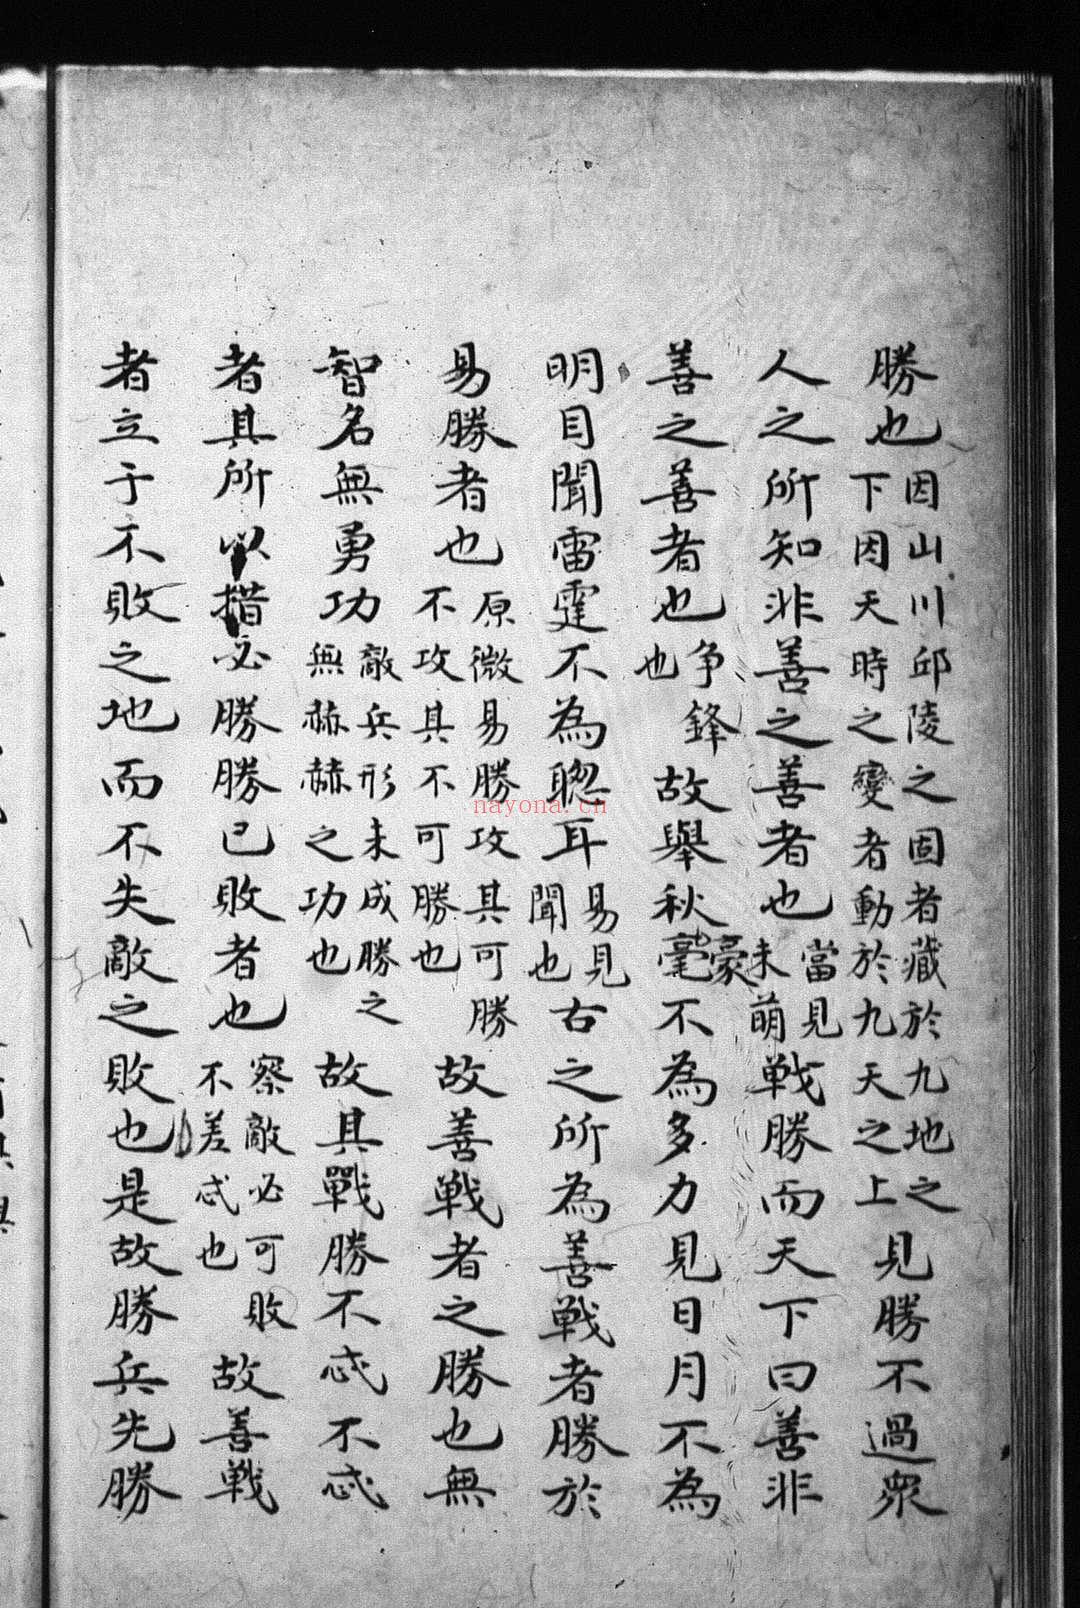 勝也因山川邱陵之固者藏於九地之下因天時之變者動於九天之上見勝不過衆
人之所知非善之善者也當見未萌戰勝而天下曰善非
善之善者也争鋒也故舉秋毫豪不為多力見日月不為
明目聞雷霆不為聦耳易見聞也古之所為善戰者勝於
易勝者也原微易勝攻其可勝不攻其不可勝也故善戰者之勝也無
智名無勇功敵兵形未成勝之無赫赫之功也故其戰勝不忒不忒
者其所以措必勝勝已敗者也察敵必可敗不差忒也故善戰
者立于不敗之地而不失敵之敗也是故勝兵先勝
nayona.cn